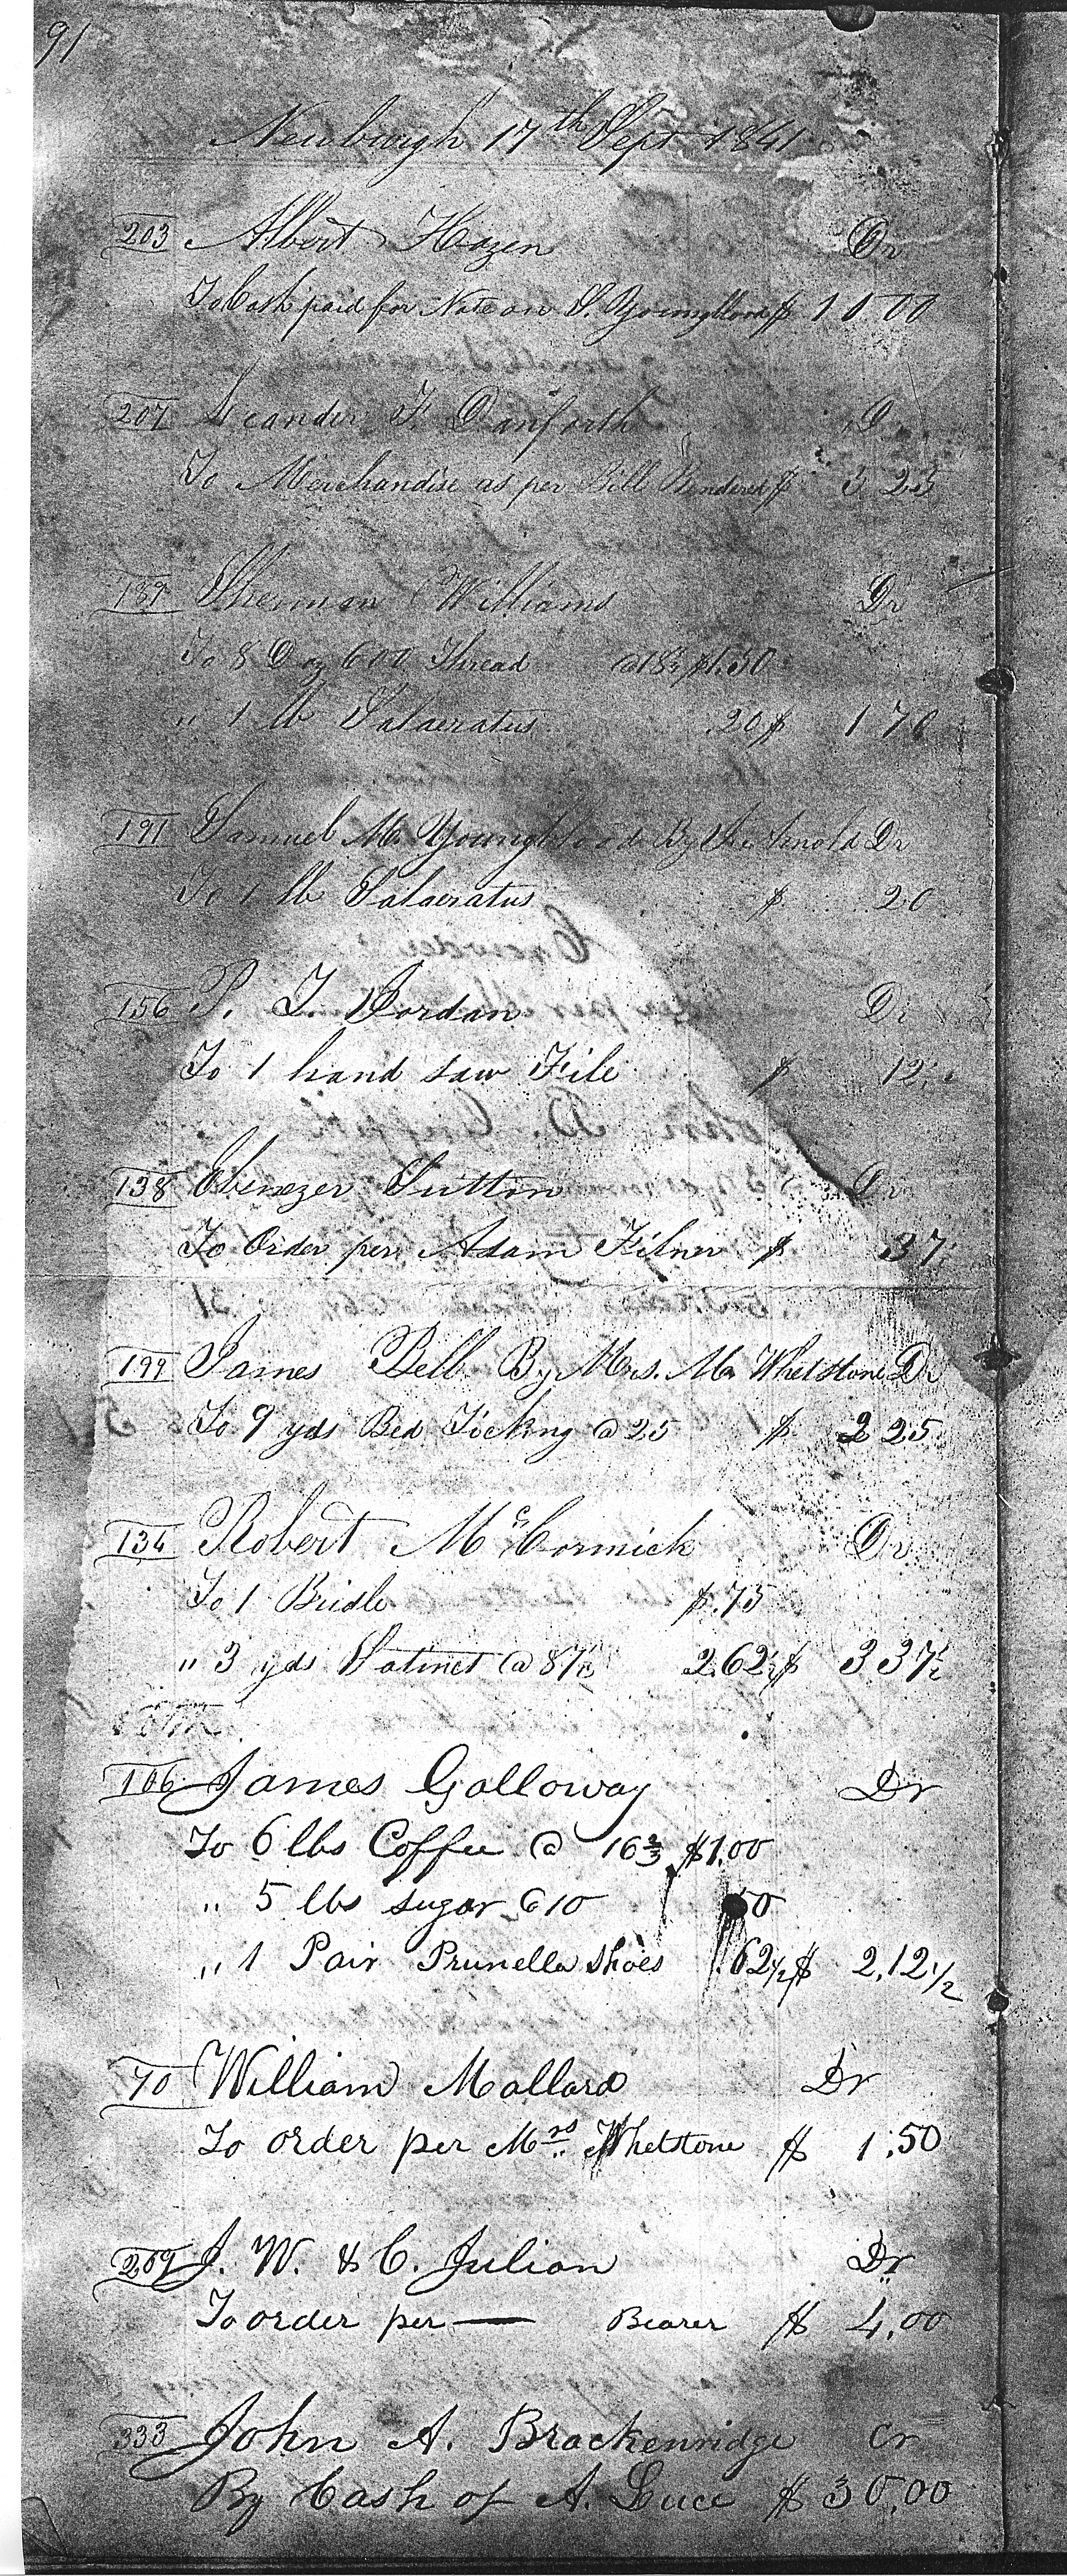 91
Newburgh 17th Sept 1841
203 Albert Hazen Dr
To Cash paid for Note on S. Youngblood $ 11.00
207 Leander F. Danforth D
To Merchandise as per Bill Rendered $ 3 25
189 Sherman Williams Dr
To 8 Doz 600 Thread @ 18¾ $1.50
" 1 lb Salaeratus .20 $ 1 70
191 Samuel M. Youngblood By Arnold Dr
To 1 lb Salaeratus $ 20
156 P. T. Jordan Dr
To 1 hand saw File $ 12½
138 Ebenezer Sutton Dr
To Order per Adam Filner $ 37½
199 James Bell By Mrs. M. Whetstone Dr
To 9 yds Bed Ticking @ 25 $ 2 25
134 Robert McCormick Dr
To 1 Bridle $.75
" 3 yds Satinet @ 87½ 2.62½ $ 3 37½
106 James Galloway Dr
To 6 lbs Coffee @ 16⅔ $1.00
" 5 lbs sugar @ 10 50
" 1 Pair Prunella Shoes .62½ $ 2.12½
70 William Mallard Dr
To order per Mrs. Whetstone $ 1.50
209 J. W. & C. Julian Dr
To order per — Bearer $ 4.00
333 John A. Brackenridge Cr
By Cash of A. Luce $ 30.00